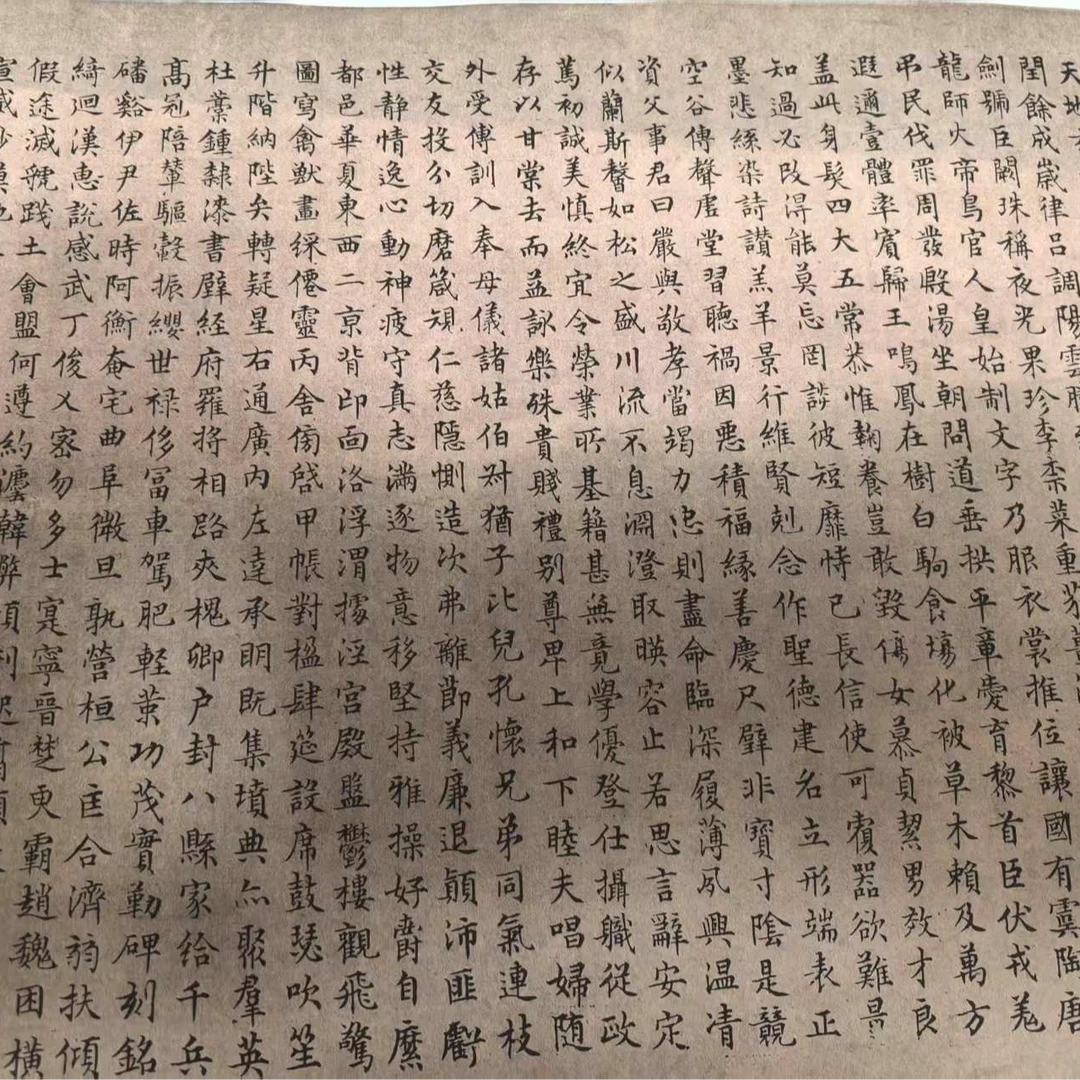 天地
閏餘成歲律呂調陽雲騰
劍號巨闕珠稱夜光果珍李柰菜重芥薑
龍師火帝鳥官人皇始制文字乃服衣裳推位讓國有虞陶唐
弔民伐罪周發殷湯坐朝問道垂拱平章愛育黎首臣伏戎羌
遐邇壹體率賓歸王鳴鳳在樹白駒食場化被草木賴及萬方
蓋此身髮四大五常恭惟鞠養豈敢毀傷女慕貞絜男效才良
知過必改得能莫忘罔談彼短靡恃己長信使可覆器欲難量
墨悲絲染詩讚羔羊景行維賢剋念作聖德建名立形端表正
空谷傳聲虛堂習聽禍因惡積福緣善慶尺璧非寶寸陰是競
資父事君曰嚴與敬孝當竭力忠則盡命臨深履薄夙興温凊
似蘭斯馨如松之盛川流不息淵澄取暎容止若思言辭安定
篤初誠美慎終宜令榮業所基籍甚無竟學優登仕攝職從政
存以甘棠去而益詠樂殊貴賤禮別尊卑上和下睦夫唱婦随
外受傅訓入奉母儀諸姑伯叔猶子比兒孔懷兄弟同氣連枝
交友投分切磨箴規仁慈隱惻造次弗離節義廉退顛沛匪虧
性静情逸心動神疲守真志滿逐物意移堅持雅操好爵自縻
都邑華夏東西二京背邙面洛浮渭據涇宮殿盤鬱樓觀飛驚
圖寫禽獸畫綵僊靈丙舍傍啓甲帳對楹肆筵設席鼓瑟吹笙
升階納陛弁轉疑星右通廣内左達承明既集墳典亦聚羣英
杜稾鍾隸漆書壁經府羅將相路夾槐卿户封八縣家給千兵
高冠陪輦驅轂振纓世禄侈富車駕肥軽策功茂實勒碑刻銘
磻谿伊尹佐時阿衡奄宅曲阜微旦孰營桓公匡合濟弱扶傾
綺迴漢惠説感武丁俊乂密勿多士寔寧晉楚更霸趙魏困横
假途滅虢踐土會盟何遵約韓弊煩
宣威沙漠